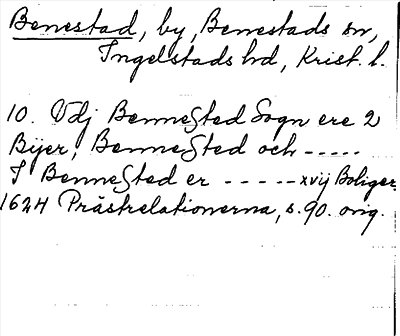 Benestad, by, Benestads sn,
Ingelstads hd, Krist. l.
10. Udj Bennested Sogn ere 2
Byer, Bennested och -----
I Bennested er ----- xvij Boliger.
1624 Prästrelationerna, s. 90. orig.